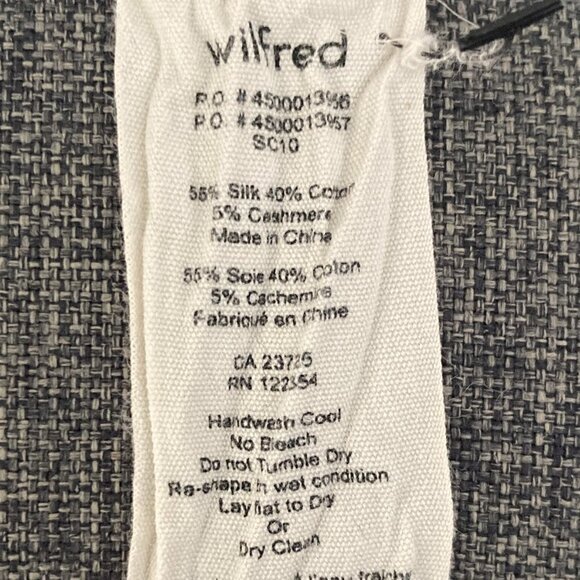 wilfred
P.O. # 4500013956
P.O. # 4500013957
SC10
55% Silk 40% Cotton
5% Cashmere
Made in China
55% Soie 40% Coton
5% Cachemire
Fabriqué en Chine
CA 23725
RN
Handwash Cool
No Bleach
Do not Tumble Dry
Re-shape in wet condition
Lay flat to Dry
Or
Dry Clean
à l'eau fraîche